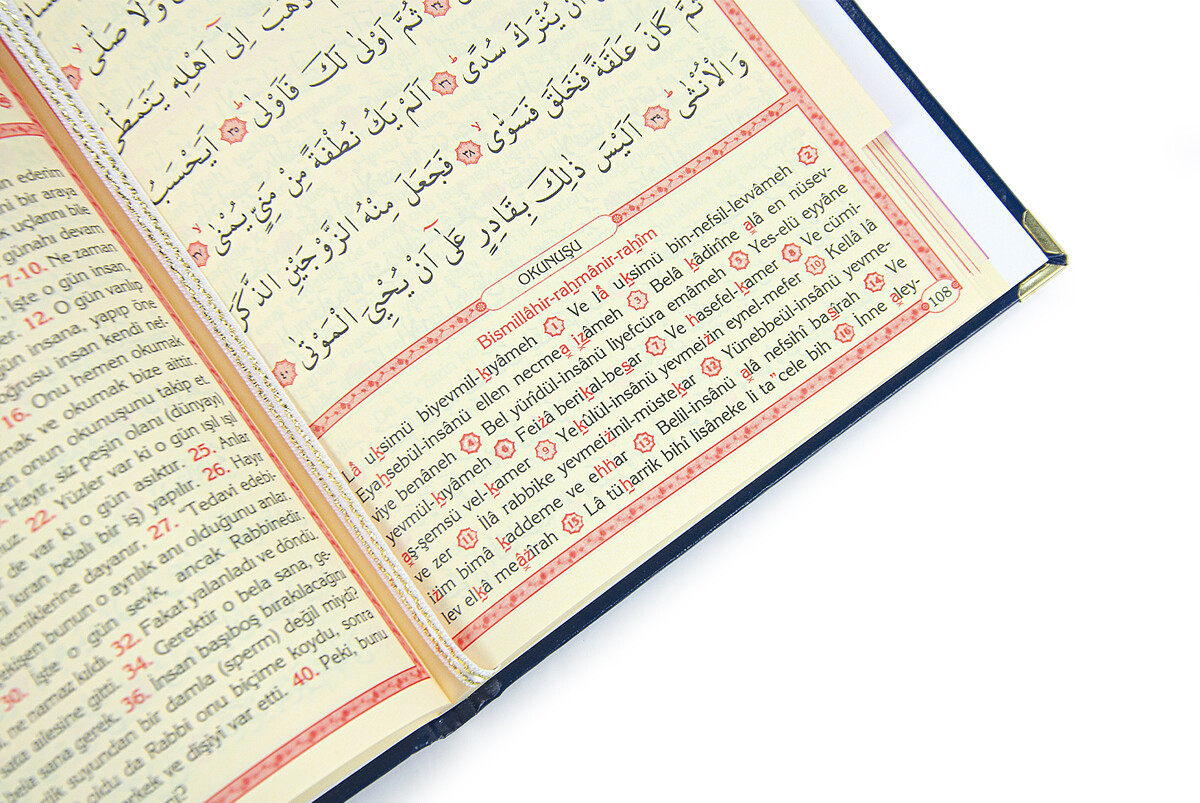 وَلَا صَلّٰى ﴿٣١﴾
ذَهَبَ اِلٰٓى اَهْلِه۪ يَتَمَطّٰى
﴿٣٤﴾ ثُمَّ اَوْلٰى لَكَ فَاَوْلٰى ﴿٣٥﴾ اَيَحْسَبُ
اَنْ يُتْرَكَ سُدًى ﴿٣٦﴾ اَلَمْ يَكُ نُطْفَةً مِنْ مَنِيٍّ يُمْنٰى ﴿٣٧﴾
ثُمَّ كَانَ عَلَقَةً فَخَلَقَ فَسَوّٰى ﴿٣٨﴾ فَجَعَلَ مِنْهُ الزَّوْجَيْنِ الذَّكَرَ
وَالْاُنْثٰى ﴿٣٩﴾ اَلَيْسَ ذٰلِكَ بِقَادِرٍ عَلٰٓى اَنْ يُحْيِيَ الْمَوْتٰى ﴿٤٠﴾
OKUNUŞU
Bismillâhir-rahmânir-rahîm
Lâ uksimü biyevmil-kıyâmeh 1 Ve lâ uksimü bin-nefsil-levvâmeh 2
Eyahsebül-insânü ellen necmea ızâmeh 3 Belâ kâdirîne alâ en nüsev-
viye benâneh 4 Bel yürîdül-insânü liyefcüra emâmeh 5 Yes-elü eyyâne
yevmül-kıyâmeh 6 Feizâ berikal-besar 7 Ve hasefel-kamer 8 Ve cümi-
aş-şemsü vel-kamer 9 Yekûlül-insânü yevmeizin eynel-mefer 10 Kellâ lâ
ve zer 11 İlâ rabbike yevmeizinil-müstekar 12 Yünebbeül-insânü yevme-
izim bimâ kaddeme ve ehhar 13 Belil-insânü alâ nefsihî basîrah 14 Ve
lev elkâ meâzîrah 15 Lâ tüharrik bihî lisâneke li ta"cele bih 16 İnne aley-
108
ederim
ni bir araya
k uçlarını bile
günahı devam
7-10. Ne zaman
İşte o gün insan,
12. O gün varılıp
gün insana, yapıp öne
oğrusu insan kendi nef-
16. Onu hemen okumak
mak ve okumak bize aittir.
en onun okunuşunu takip et.
Hayır, siz peşin olanı (dünyayı)
nuz. 22. Yüzler var ki o gün ışıl ışıl
de var ki o gün asıktır. 25. Anlar
ni kıran belalı bir iş) yapılır. 26. Hayır
kemiklerine dayanır, 27. "Tedavi edebi-
ekişen bunun o ayrılık anı olduğunu anlar.
30. İşte o gün sevk, ancak Rabbinedir.
ne namaz kıldı. 32. Fakat yalanladı ve döndü.
sata ailesine gitti. 34. Gerektir o bela sana, ge-
bela sana gerek. 36. İnsan başıboş bırakılacağını
suyundan bir damla (sperm) değil miydi?
oldu da Rabbi onu biçime koydu, sonra
erkek ve dişiyi var etti. 40. Peki, bunu